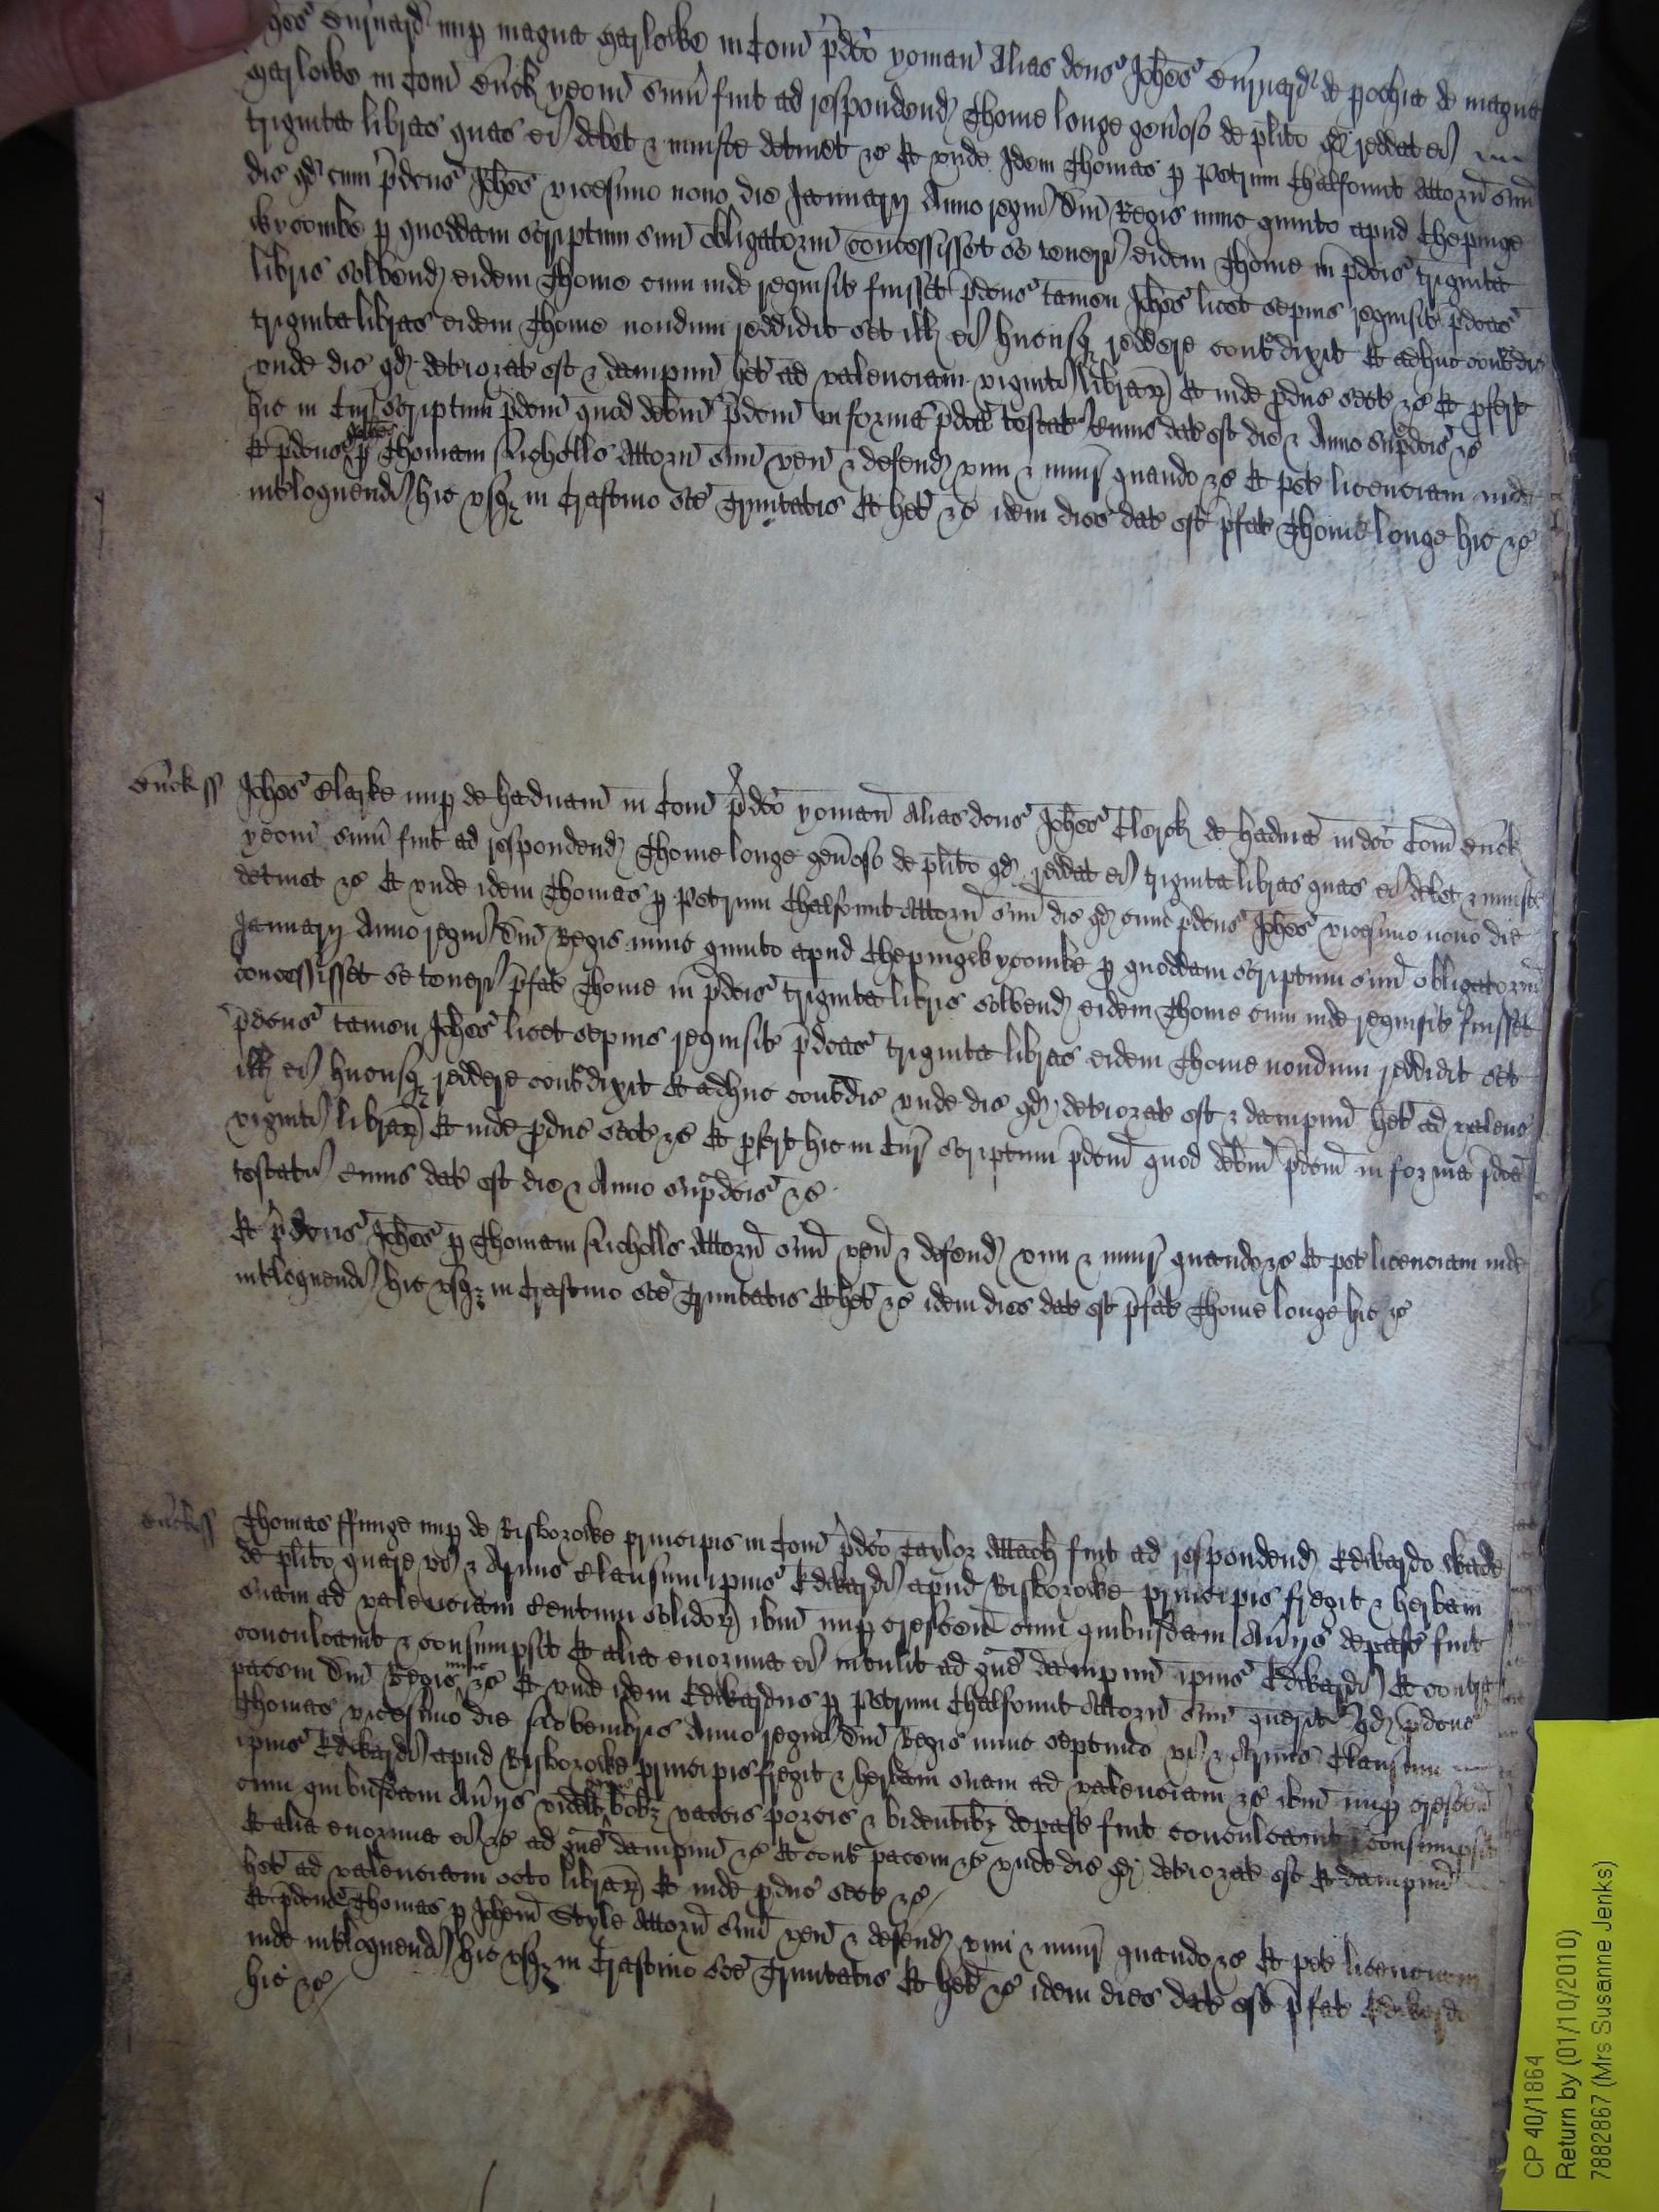 Joh̄es Bern̄ard nup magna Marlowe in Com̄ p̄dc̄o yoman Alias dc̄us Joh̄es Bern̄ard de pochia de magna
Marlowe in Com̄ Buck yeom̄ sum̄ fuit ad respondend Thome Longe gen̄oso de pl̄ito qd reddat ei
triginta libras quas ei debet & iniuste detinet &c Et unde Idem Thomas p Petrum Chalfount Attorn̄ suū
dic qd cum p̄dc̄us Joh̄es vicesimo nono die Januarij Anno regni Dn̄i Regis nunc quinto apud Chepinge
Wycombe p quoddam scriptum suū obligatoriū concessisset se teneri eidem Thome in p̄dc̄is triginta
libris solvend eidem Thome cum inde requisit fuisset p̄dc̄us tamen Joh̄es licet sepius requisit p̄dc̄as
triginta libras eidem Thome nondum reddidit set ill ei hucusq reddere cont̄dixit Et adhuc cont̄dic
unde dic qd deteriorat est & dampnū het ad valenciam viginti librar Et inde pduc sect &c Et pfert
hic in Cur scriptum p̄dc̄m quod debit̄ p̄dc̄m in forma p̄dc̄a testat Cuius dat est die & Anno sup̄dc̄is &c
Et p̄dc̄us Joh̄es p Thomam Nicholls Attorn̄ suū ven̄ & defend vim & iniur quando &c Et pet licenciam inde
int̄loquendi hic usq in Crastino sc̄e Trinitatis Et het &c idem dies dat est p̄fat Thome Longe hic &c
Buck ss Joh̄es Clarke nup de Hadnam̄ in Com̄ p̄dc̄o yoman Alias dc̄us Joh̄es Clerck de Hadnā in dc̄o Com̄ Buck
yeom̄ sum̄ fuit ad respondend Thome Longe gen̄oso de pl̄ito qd reddat ei triginta libras quas ei debet & iniuste
detinet &c Et unde idem Thomas p Petrum Chalfount Attorn̄ suū dic qd cum p̄dc̄us Joh̄es vicesimo nono die
Januarij Anno regni Dn̄i Regis nunc quinto apud Chepingewycombe p quoddam scriptum suū obligatoriū
concessisset se teneri p̄fat Thome in p̄dc̄is triginta libris solvend eidem Thome cum inde requisit fuisset
p̄dc̄us tamen Joh̄es licet sepius requisit p̄dc̄as triginta libras eidem Thome nondum reddidit set
ill ei hucusq reddere cont̄dixit Et adhuc cont̄dic unde dic qd deteriorat est & dampnū het ad valenc
viginti librar Et inde pduc sect &c Et pfert hic in Cur scriptum p̄dc̄m quod debit̄ p̄dc̄m in forma p̄dc̄a
testatu Cuius dat est die & Anno sup̄dc̄is &c
Et p̄dc̄us Joh̄es p Thomam Nicholls Attorn̄ suū ven̄ & defend vim & iniur quando &c Et pet licenciam inde
int̄loquendi hic usq in Crastino sc̄e Trinitatis Et het &c idem dies dat est p̄fat Thome Longe hic &c
Buck ss Thomas ffunge nup de Risborowe principis in Com̄ p̄dc̄o Taylor Attach fuit ad respondend Edwardo Wade
de pl̄ito quare vi & Armis Clausum ip̄ius Edwardi apud Risborowe principis fregit & herbam
suam ad valenciam Centum solidor ib̄m nup crescent̄ cum quibusdam Aūijs depast fuit
conculcauit & consumpsit Et alia enormia ei intulit ad gūe dampnum ip̄ius Edwardi Et contra
pacem Dn̄i Regis nunc &c Et unde idem Edwardus p Petrum Chalfount Attorn̄ suū querit qd p̄dc̄us
Thomas vicesimo die Novembris Anno regni Dn̄i Regis nunc septimo vi & Armis Clausum
ip̄ius Edwardi apud Risborowe principis fregit & herbam suam ad valenciam &c ib̄m nup crescent̄
cum quibusdam Aūijs videlt bobz vaccis porcis & bidentibz depast fuit conculcauit & consumpsit
Et alia enormia ei &c ad gūe dampnū &c Et cont̄ pacem &c unde dic qd deteriorat est Et dampnū
het ad valenciam octo librar Et inde pduc sect &c
Et p̄dc̄us Thomas p Joh̄em Style Attorn̄ suū ven̄ & defend vim & iniur quando &c Et pet licenciam
inde int̄loquendi hic usq in Crastino sc̄e Trinitatis Et het &c idem dies dat est p̄fat Edwardo
hic &c
CP 40/1864
Return by (01/10/2010)
7882867 (Mrs Susanne Jenks)